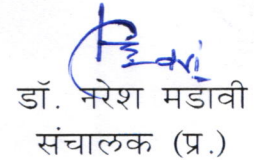 डॉ. नरेश मडावी
संचालक (प्र.)